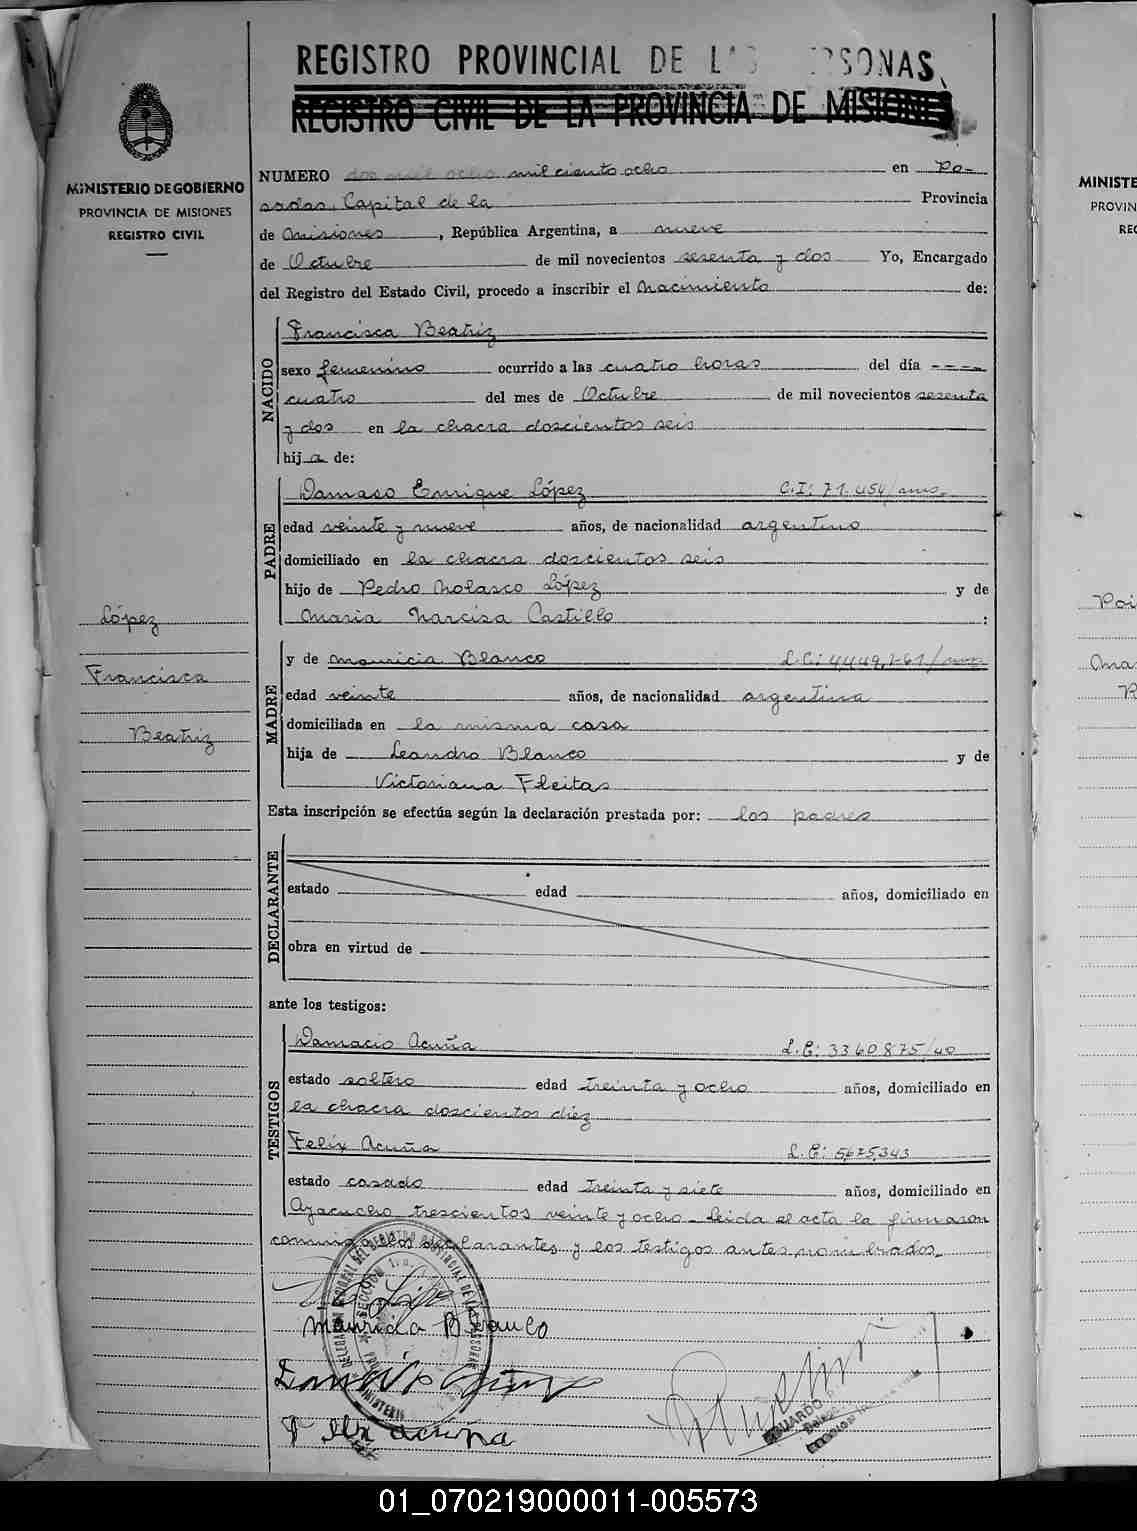 REGISTRO PROVINCIAL DE LAS PERSONAS
REGISTRO CIVIL DE LA PROVINCIA DE MISIONES
MINISTERIO DE GOBIERNO
PROVINCIA DE MISIONES
REGISTRO CIVIL
NUMERO dos mil ocho mil ciento ocho en Po-
sadas, Capital de la Provincia
de Misiones, República Argentina, a nueve
de Octubre de mil novecientos sesenta y dos Yo, Encargado
del Registro del Estado Civil, procedo a inscribir el Nacimiento de:
NACIDO
Francisca Beatriz
sexo femenino ocurrido a las cuatro horas del día ----
cuatro del mes de Octubre de mil novecientos sesenta
y dos en la chacra doscientos seis
hij a de:
PADRE
Damaso Enrique López C.I: 71.454/mns.
edad veinte y nueve años, de nacionalidad argentino
domiciliado en la chacra doscientos seis
hijo de Pedro Nolasco López y de
Maria Narcisa Castillo :
López
Francisca
Beatriz
MADRE
y de Mauricia Blanco L.C: 4449.261/mns
edad veinte años, de nacionalidad argentina
domiciliada en la misma casa
hija de Leandro Blanco y de
Victoriana Fleitas
Esta inscripción se efectúa según la declaración prestada por: los padres
DECLARANTE
estado edad años, domiciliado en
obra en virtud de
ante los testigos:
TESTIGOS
Damacio Acuña L.E: 3360875/40
estado soltero edad treinta y ocho años, domiciliado en
la chacra doscientos diez
Felix Acuña L.E: 5675.343
estado casado edad treinta y siete años, domiciliado en
Ayacucho trescientos veinte y ocho - Leida el acta la firmaron
conmigo los declarantes y los testigos antes nombrados.
Mauricia Blanco
Felix acuña
MINISTE
PROVIN
REG
01_070219000011-005573